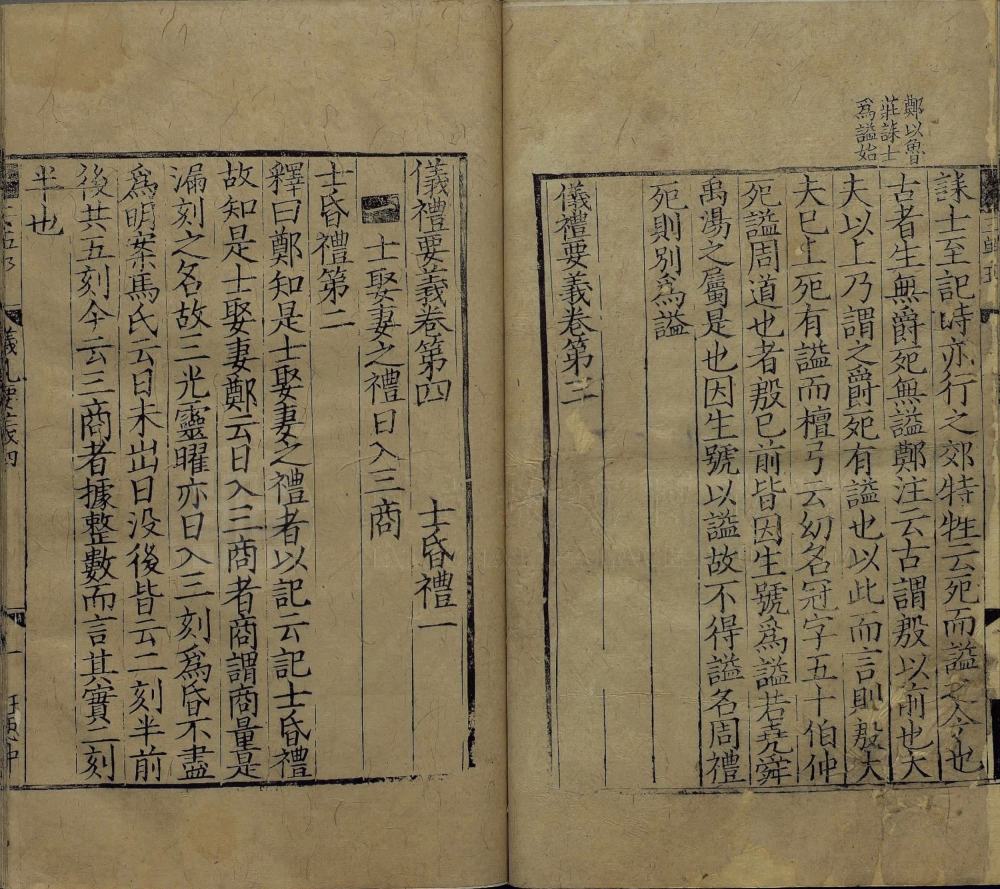 鄭以魯
莊誄士
爲謚始
誄士至記時亦行之郊特牲云死而謚之今也
古者生無爵死無謚鄭注云古謂殷以前也大
夫以上乃謂之爵死有謚也以此而言則殷大
夫已上死有謚而檀弓云幼名冠字五十伯仲
死謚周道也者殷已前皆因生號爲謚若堯舜
禹湯之屬是也因生號以謚故不得謚名周禮
死則別爲謚
儀禮要義卷第三
儀禮要義卷第四 士昏禮一
士娶妻之禮日入三商
士昏禮第二
釋曰鄭知是士娶妻之禮者以記云記士昏禮
故知是士娶妻鄭云日入三商者商謂商量是
漏刻之名故三光靈曜亦日入三刻爲昏不盡
爲明案馬氏云日未出日没後皆云二刻半前
後共五刻今云三商者據整數而言其實二刻
半也